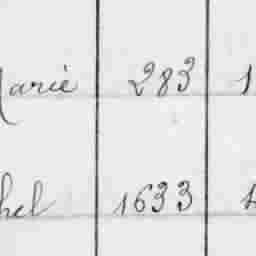 Marie 283 1
hel 1633